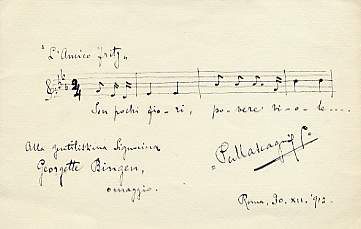 "L'Amico Fritz"
Son pochi fio - ri, po - vere vi - o - le ....
Alla gentilissima Signorina
Georgette Bingen,
omaggio.
P. Mascagni
Roma, 30. XII. '912.